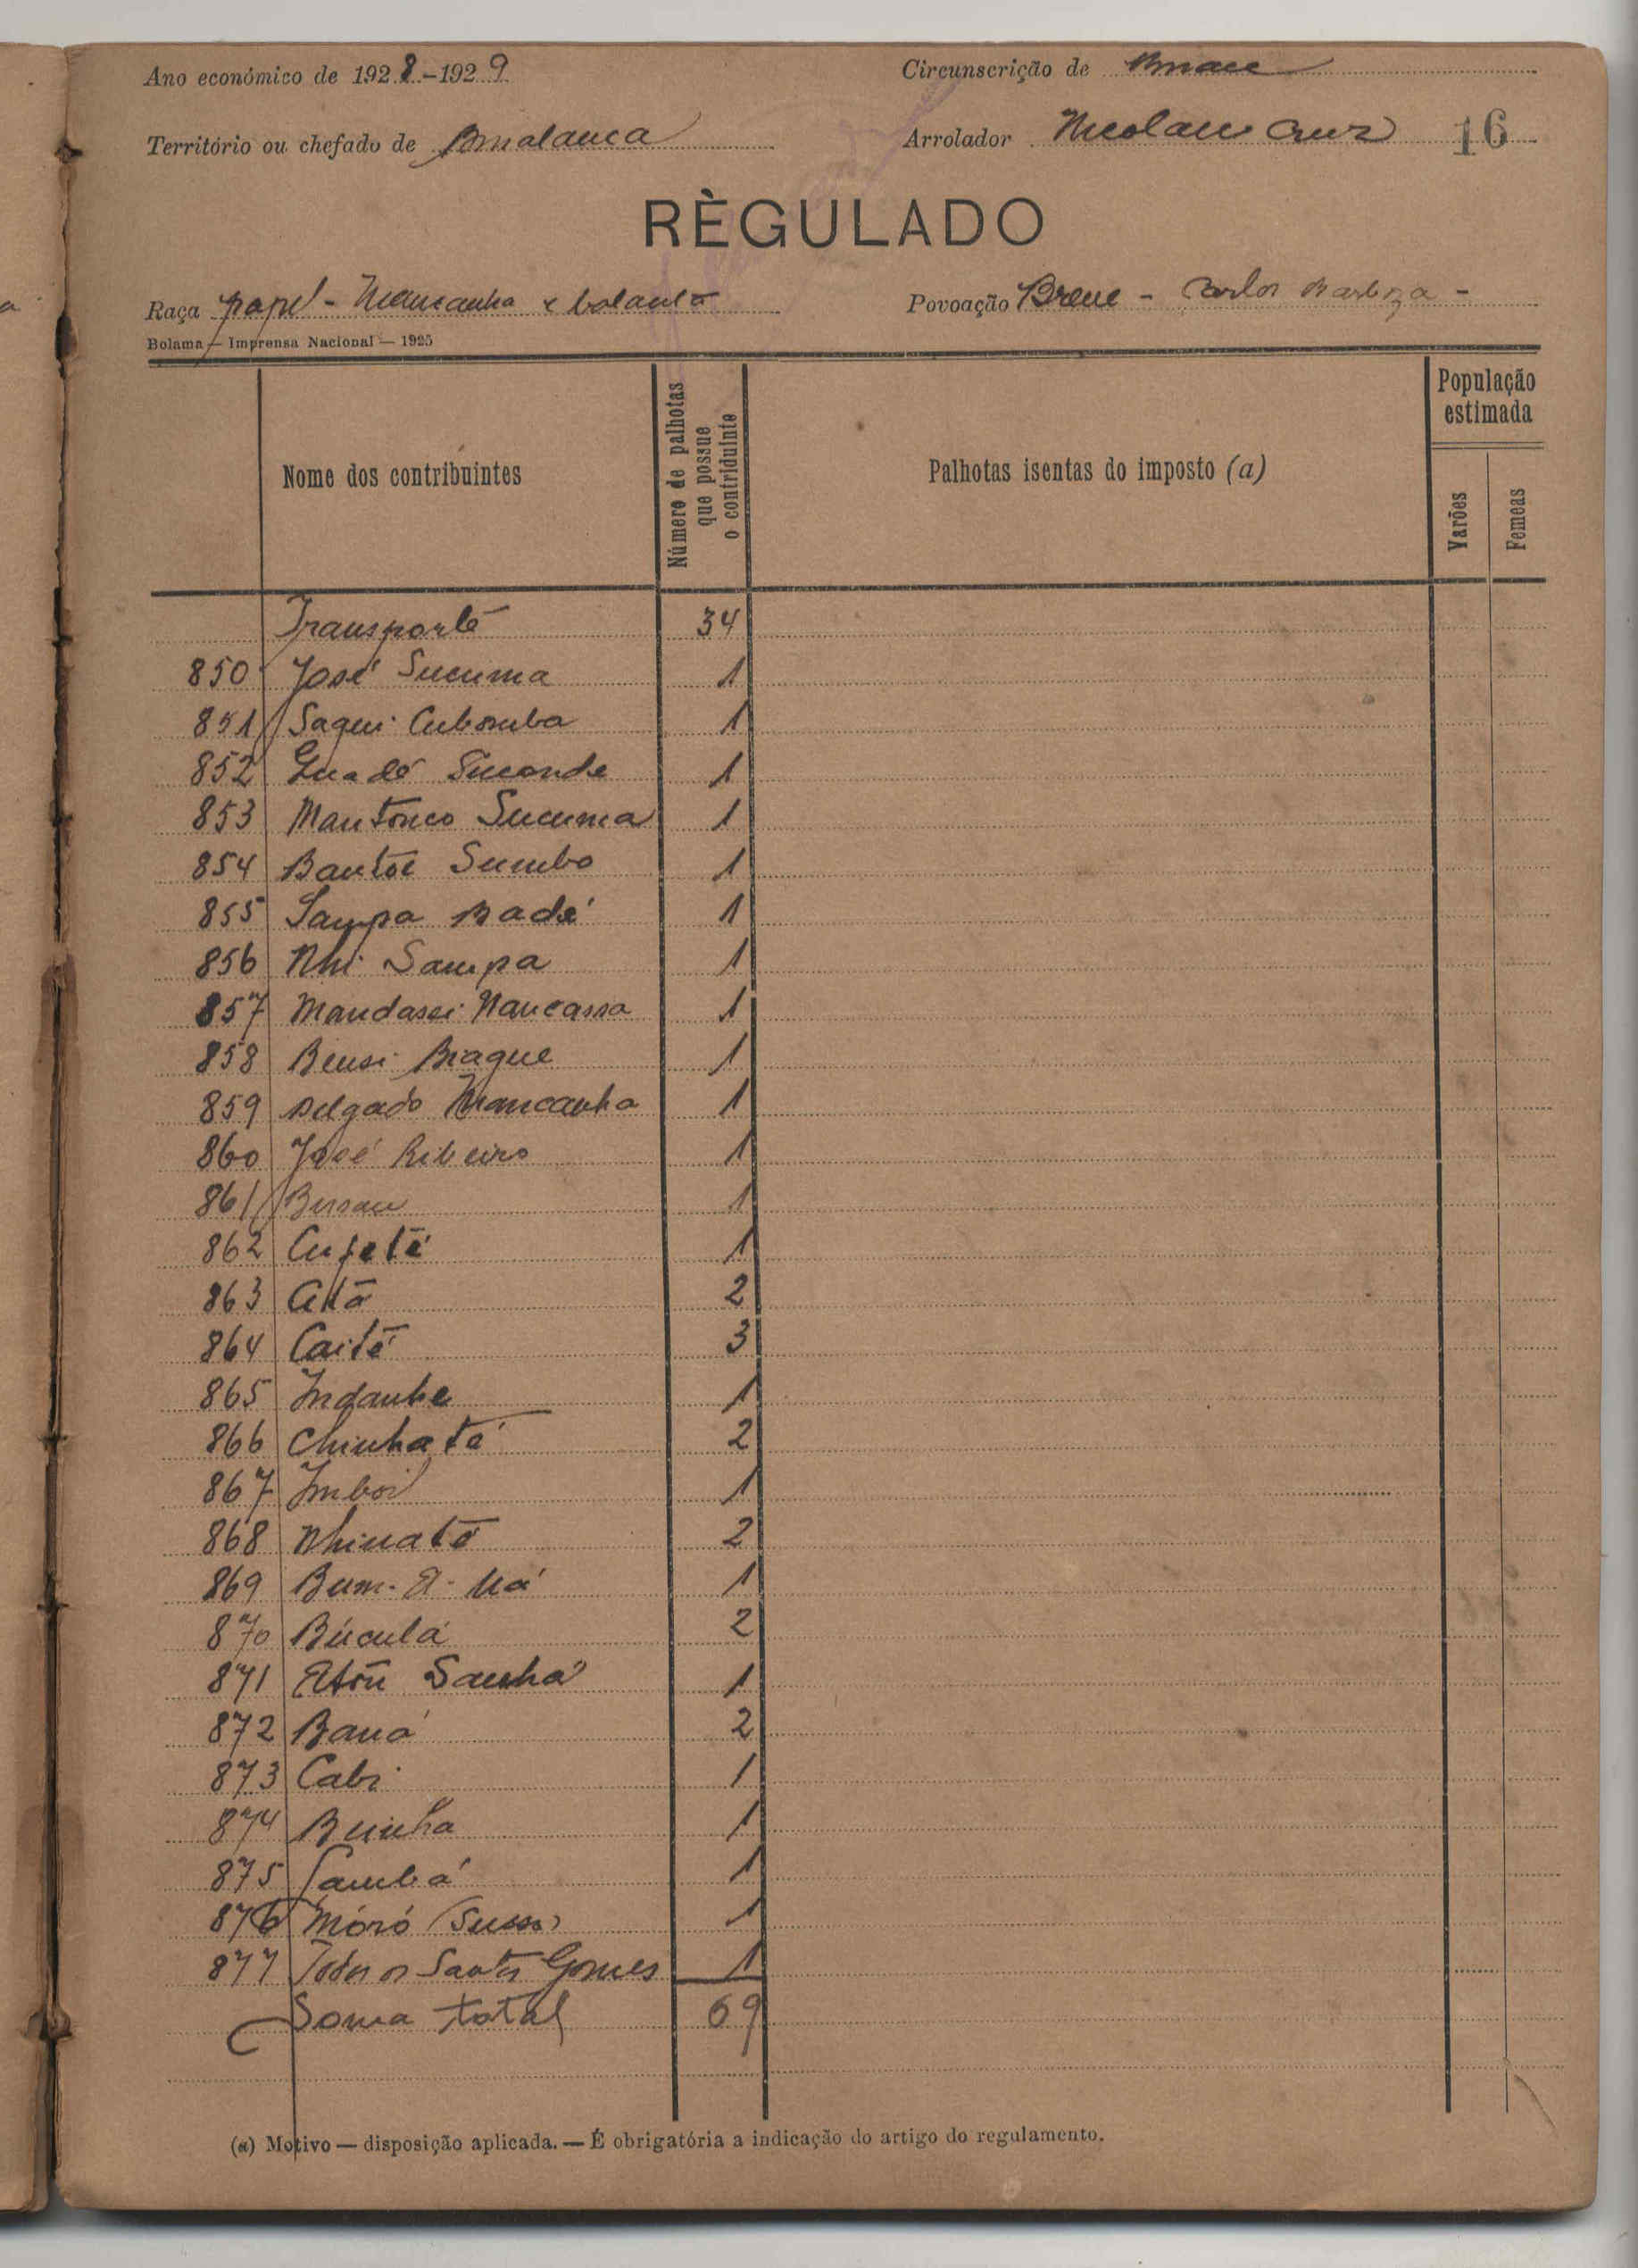 Ano económico de 1928-1929
Circunscrição de Bissau
Território ou chefado de Bissalanca
Arrolador Nicolau Cruz 16
RÈGULADO
Raça papel - Mancanha e balanta
Povoação Brene - Carlos Barboza -
Bolama — Imprensa Nacional — 1925
Nome dos contribuintes
Número de palhotas que possue o contriduinte
Palhotas isentas do imposto (a)
População estimada
Varões
Femeas
Transporte 34
850 José Sucuma 1
851 Saqui Cubomba 1
852 Quadé Siconde 1
853 Mantonco Sucuma 1
854 Bantoi Sumbo 1
855 Sampa Badé 1
856 Nhi Sampa 1
857 Mandassi Nancassa 1
858 Beusi Biague 1
859 Delgado Mancanha 1
860 José Ribeiro 1
861 Bissau 1
862 Cufeté 1
863 2
864 Caité 3
865 Indanhe 1
866 Chinhaté 2
867 Imboi 1
868 Nhinató 2
869 Bum-A-Ná 1
870 Búculá 2
871 Sanhá 1
872 Baná 2
873 Cabi 1
874 Buinha 1
875 Sambá 1
876 Móró (Susso) 1
877 Todos os Santos Gomes 1
Soma total 69
(a) Motivo — disposição aplicada. — É obrigatória a indicação do artigo do regulamento.